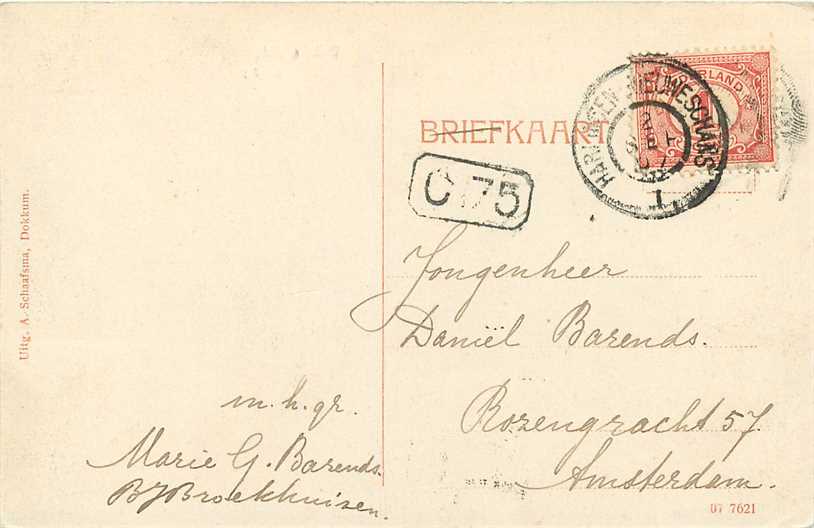 BRIEFKAART
NEDERLAND
HARLINGEN-NIEUWESCHANS
I
C 75
Jongenheer
Daniël Barends.
Rozengracht 57
Amsterdam.
m.h.gr.
Marie G. Barends.
BJBroekhuizen.
Uitg. A. Schaafsma, Dokkum.
07 7621